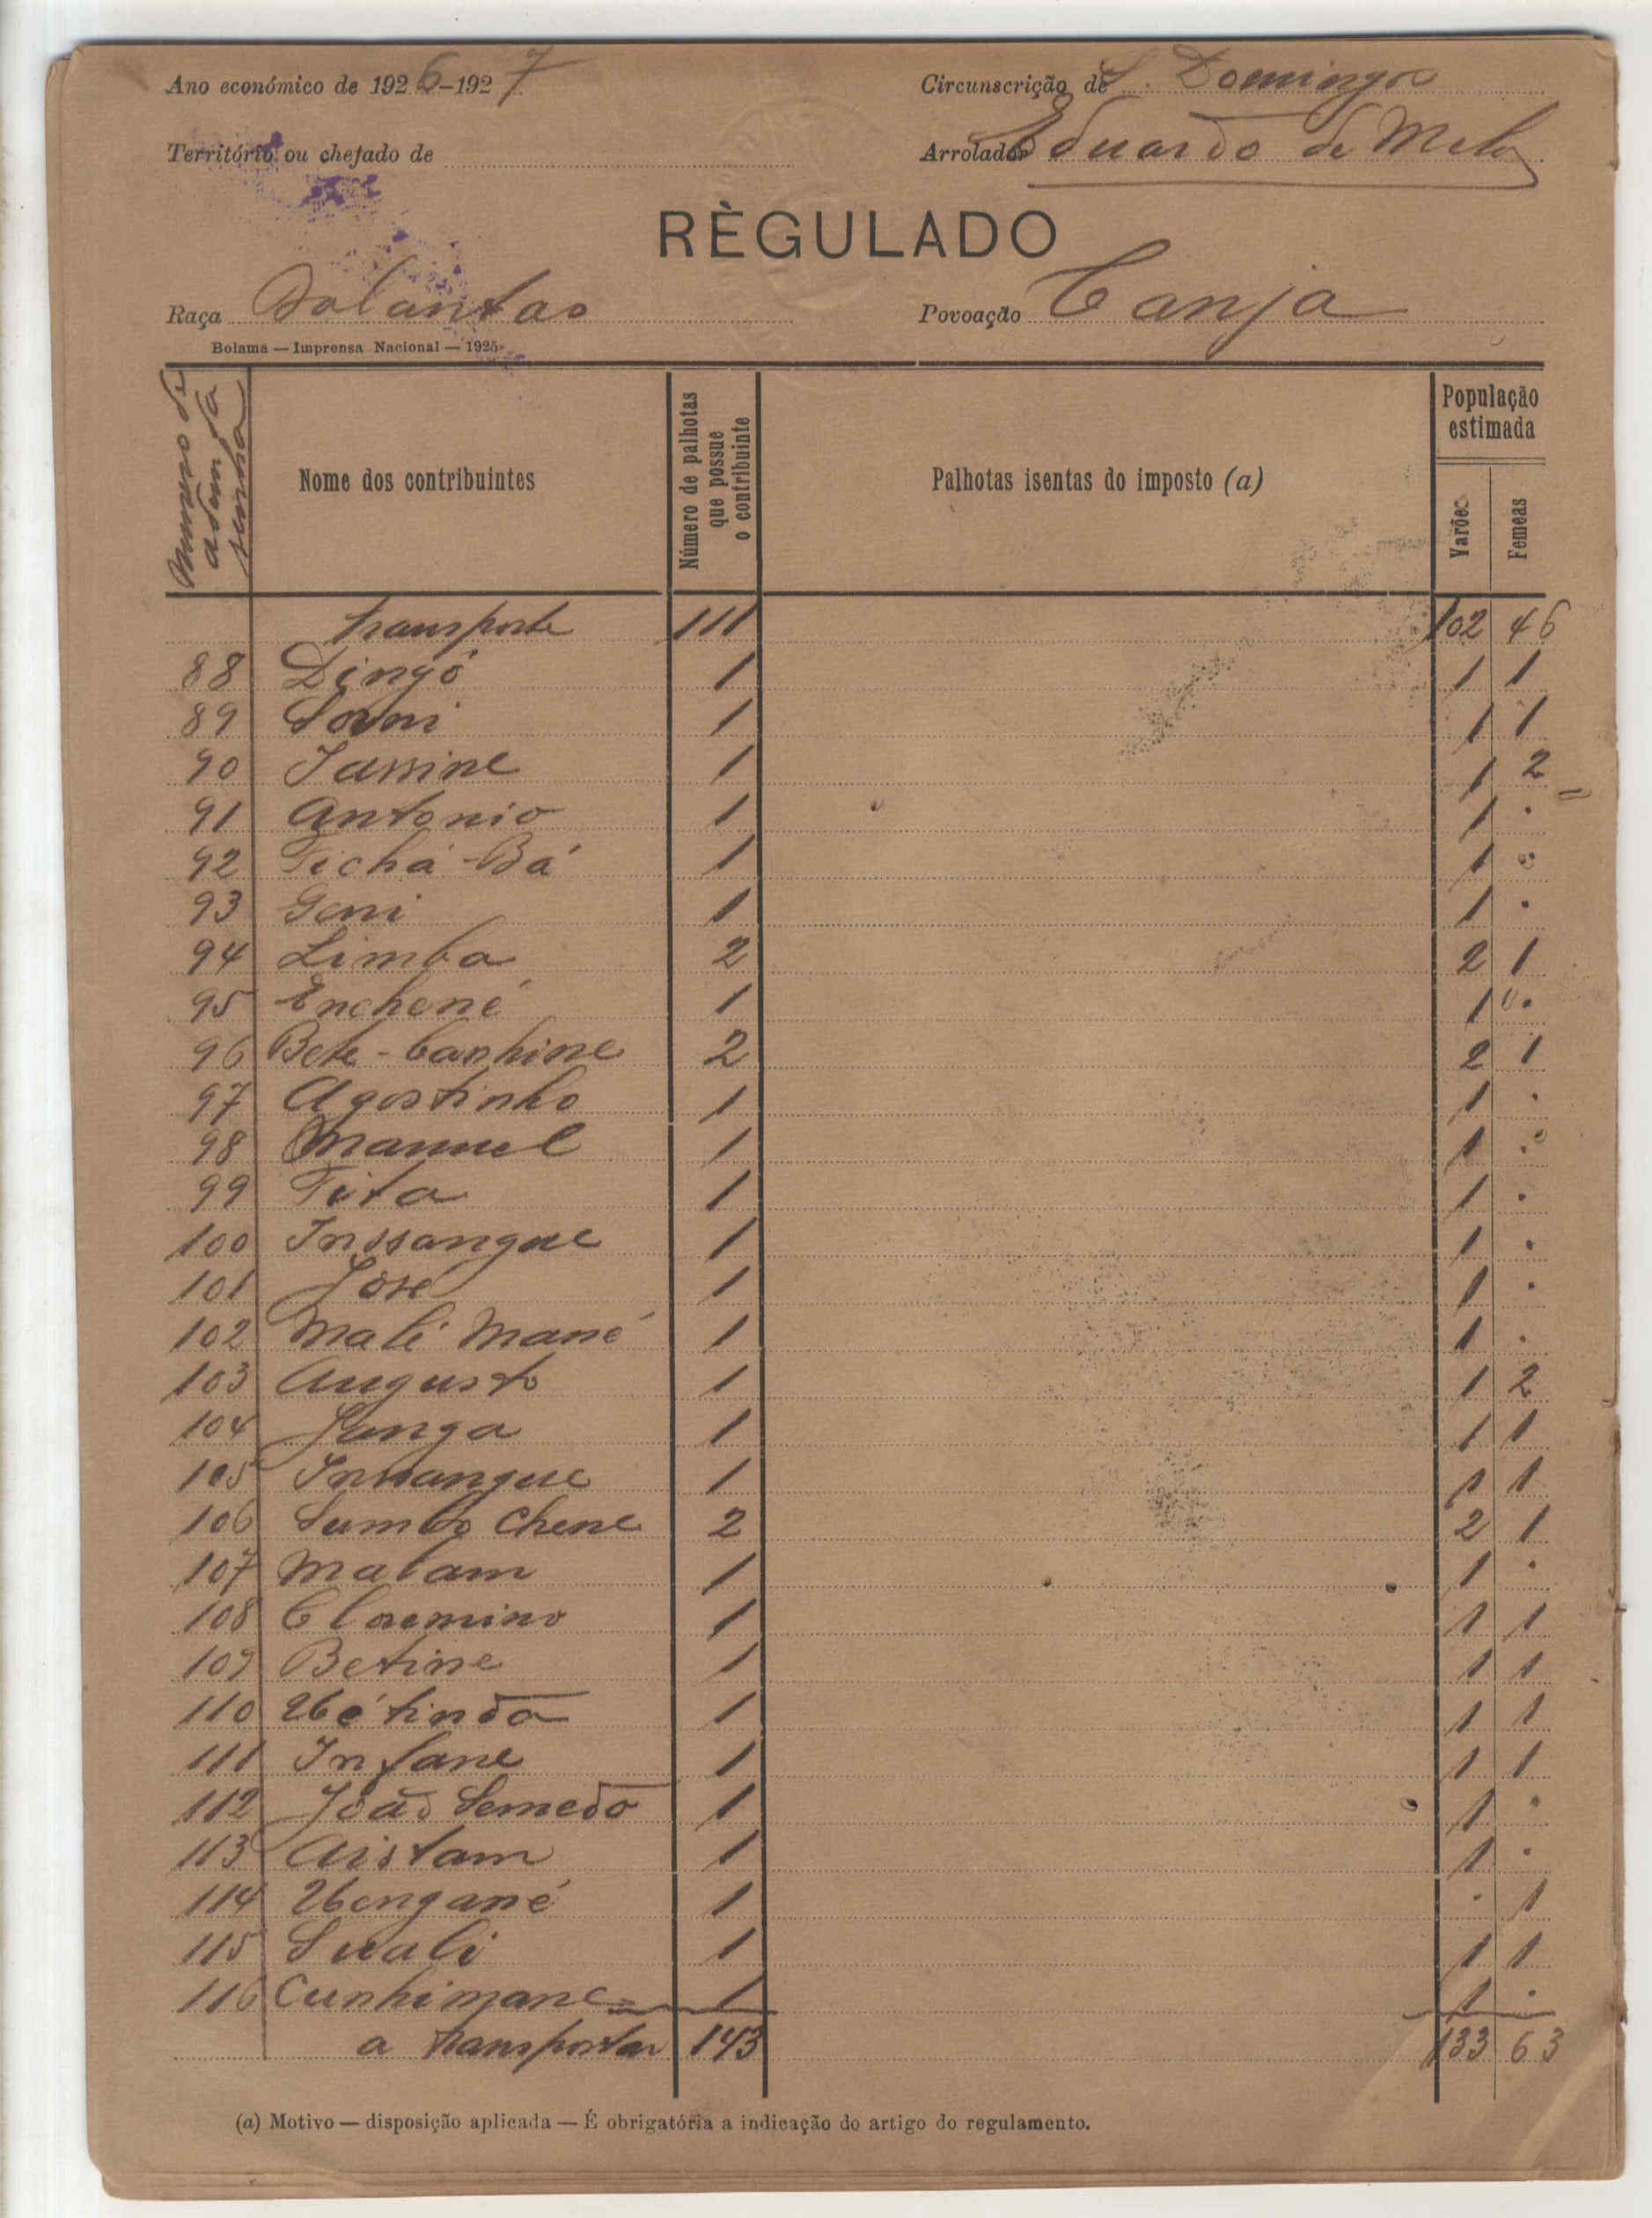 Ano económico de 1926-1927
Circunscrição de S. Domingos
Território ou chefado de
Arrolador Eduardo de Melo
RÈGULADO
Raça Balantas
Povoação Canja
Bolama — Imprensa Nacional — 1925
Numero da
senha
Nome dos contribuintes
Número de palhotas que possue o contribuinte
Palhotas isentas do imposto (a)
População estimada
Varões
Femeas
Transporte 111 102 46
88 Dingô 1 1 1
89 1 1 1
90 Jassine 1 1 2
91 Antonio 1 1 .
92 Tichá-Bá 1 1 .
93 Geni 1 1 .
94 Limba 2 2 1
95 Enchené 1 1 .
96 Bete-Canhine 2 2 1
97 Agostinho 1 1 .
98 Manuel 1 1 .
99 Tita 1 1 .
100 Inssangue 1 1 .
101 José 1 1 .
102 Mali Mané 1 1 .
103 Augusto 1 1 2
104 Sanga 1 1 1
105 Inssangue 1 1 1
106 Sumbo Chene 2 2 1
107 Malam 1 1 .
108 1 1 1
109 Betine 1 1 1
110 1 1 1
111 Infane 1 1 1
112 João Semedo 1 1 .
113 Aistam 1 1 .
114 1 . 1
115 Suali 1 1 1
116 Cunhimane 1 1 .
a transportar 143 133 63
(a) Motivo — disposição aplicada — É obrigatória a indicação do artigo do regulamento.